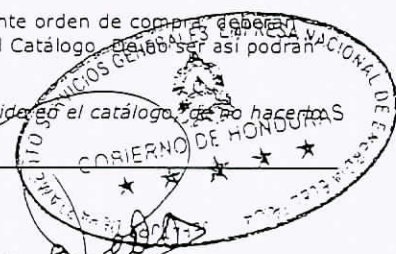 nte orden de compra, deberán
l Catálogo. De no ser así podrán
ido en el catálogo, de no hacerlo
SERVICIOS GENERALES EMPRESA NACIONAL DE ENERGIA ELECTRICA
GOBIERNO DE HONDURAS